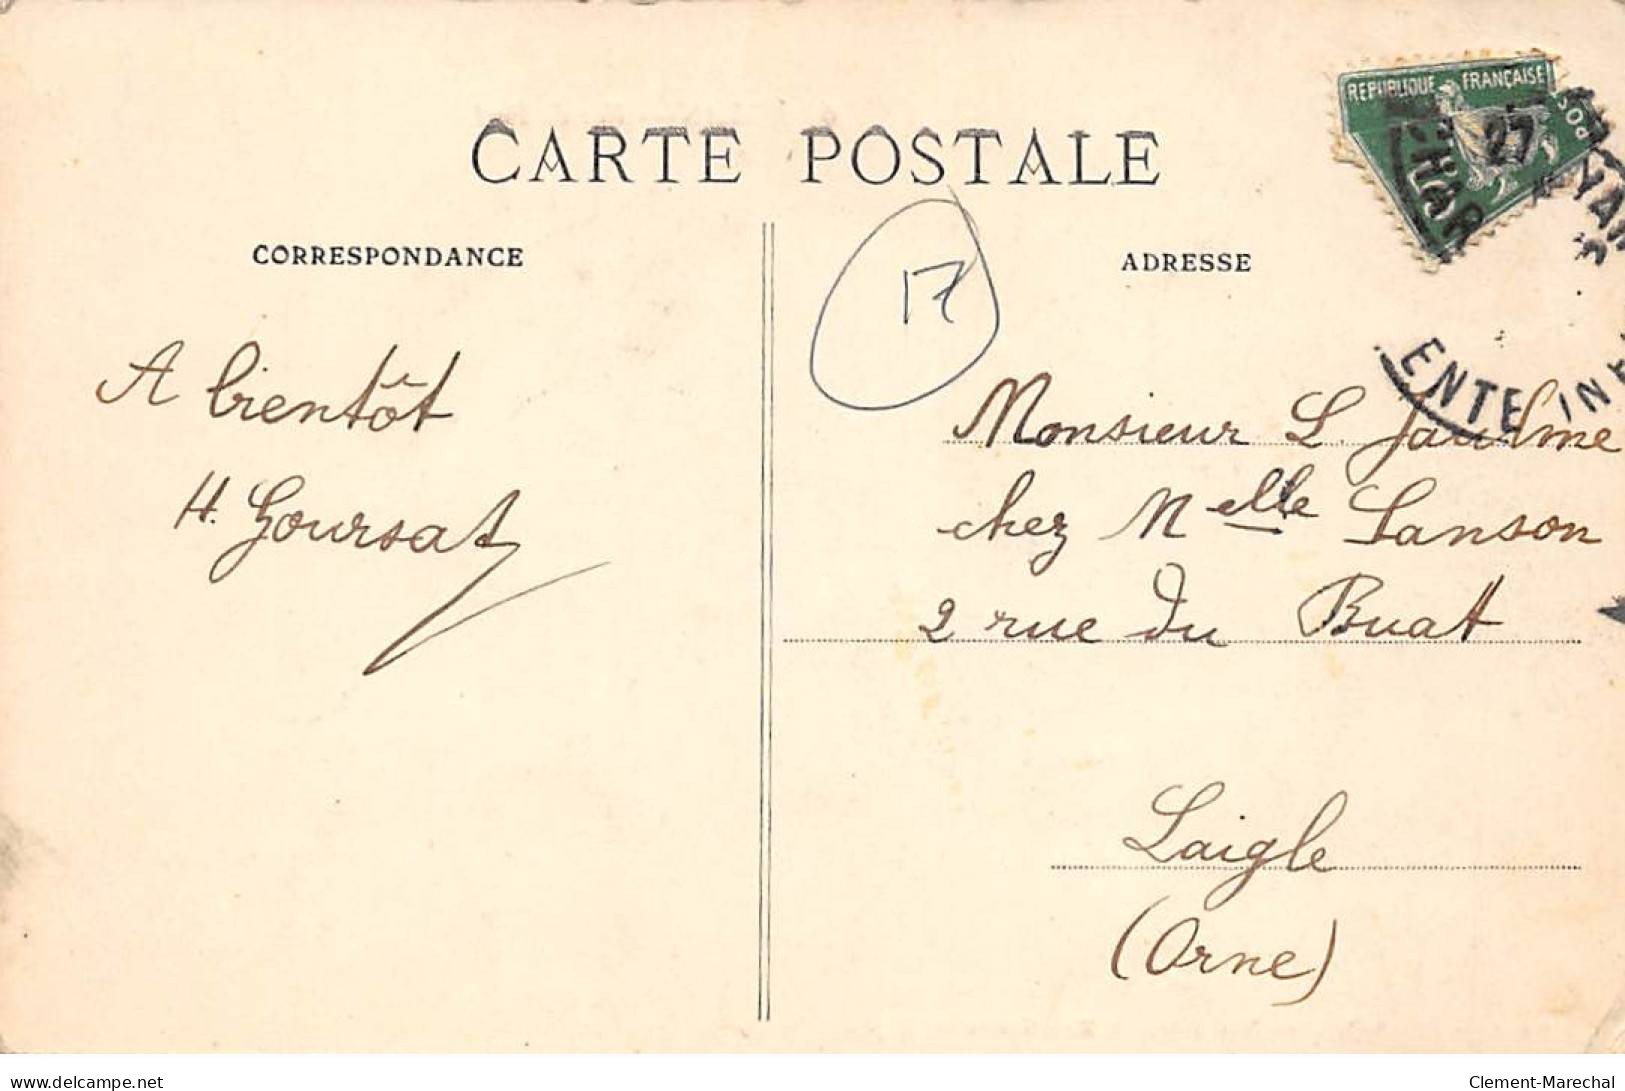 CARTE POSTALE
CORRESPONDANCE
ADRESSE
REPUBLIQUE FRANÇAISE
POS
27
CHAR
ENTE INF
17
A bientôt
H. Goursat
Monsieur L. Jaulme
chez Melle Lanson
2 rue du Buat
Laigle
(Orne)
delcampe.net
Clement-Marechal